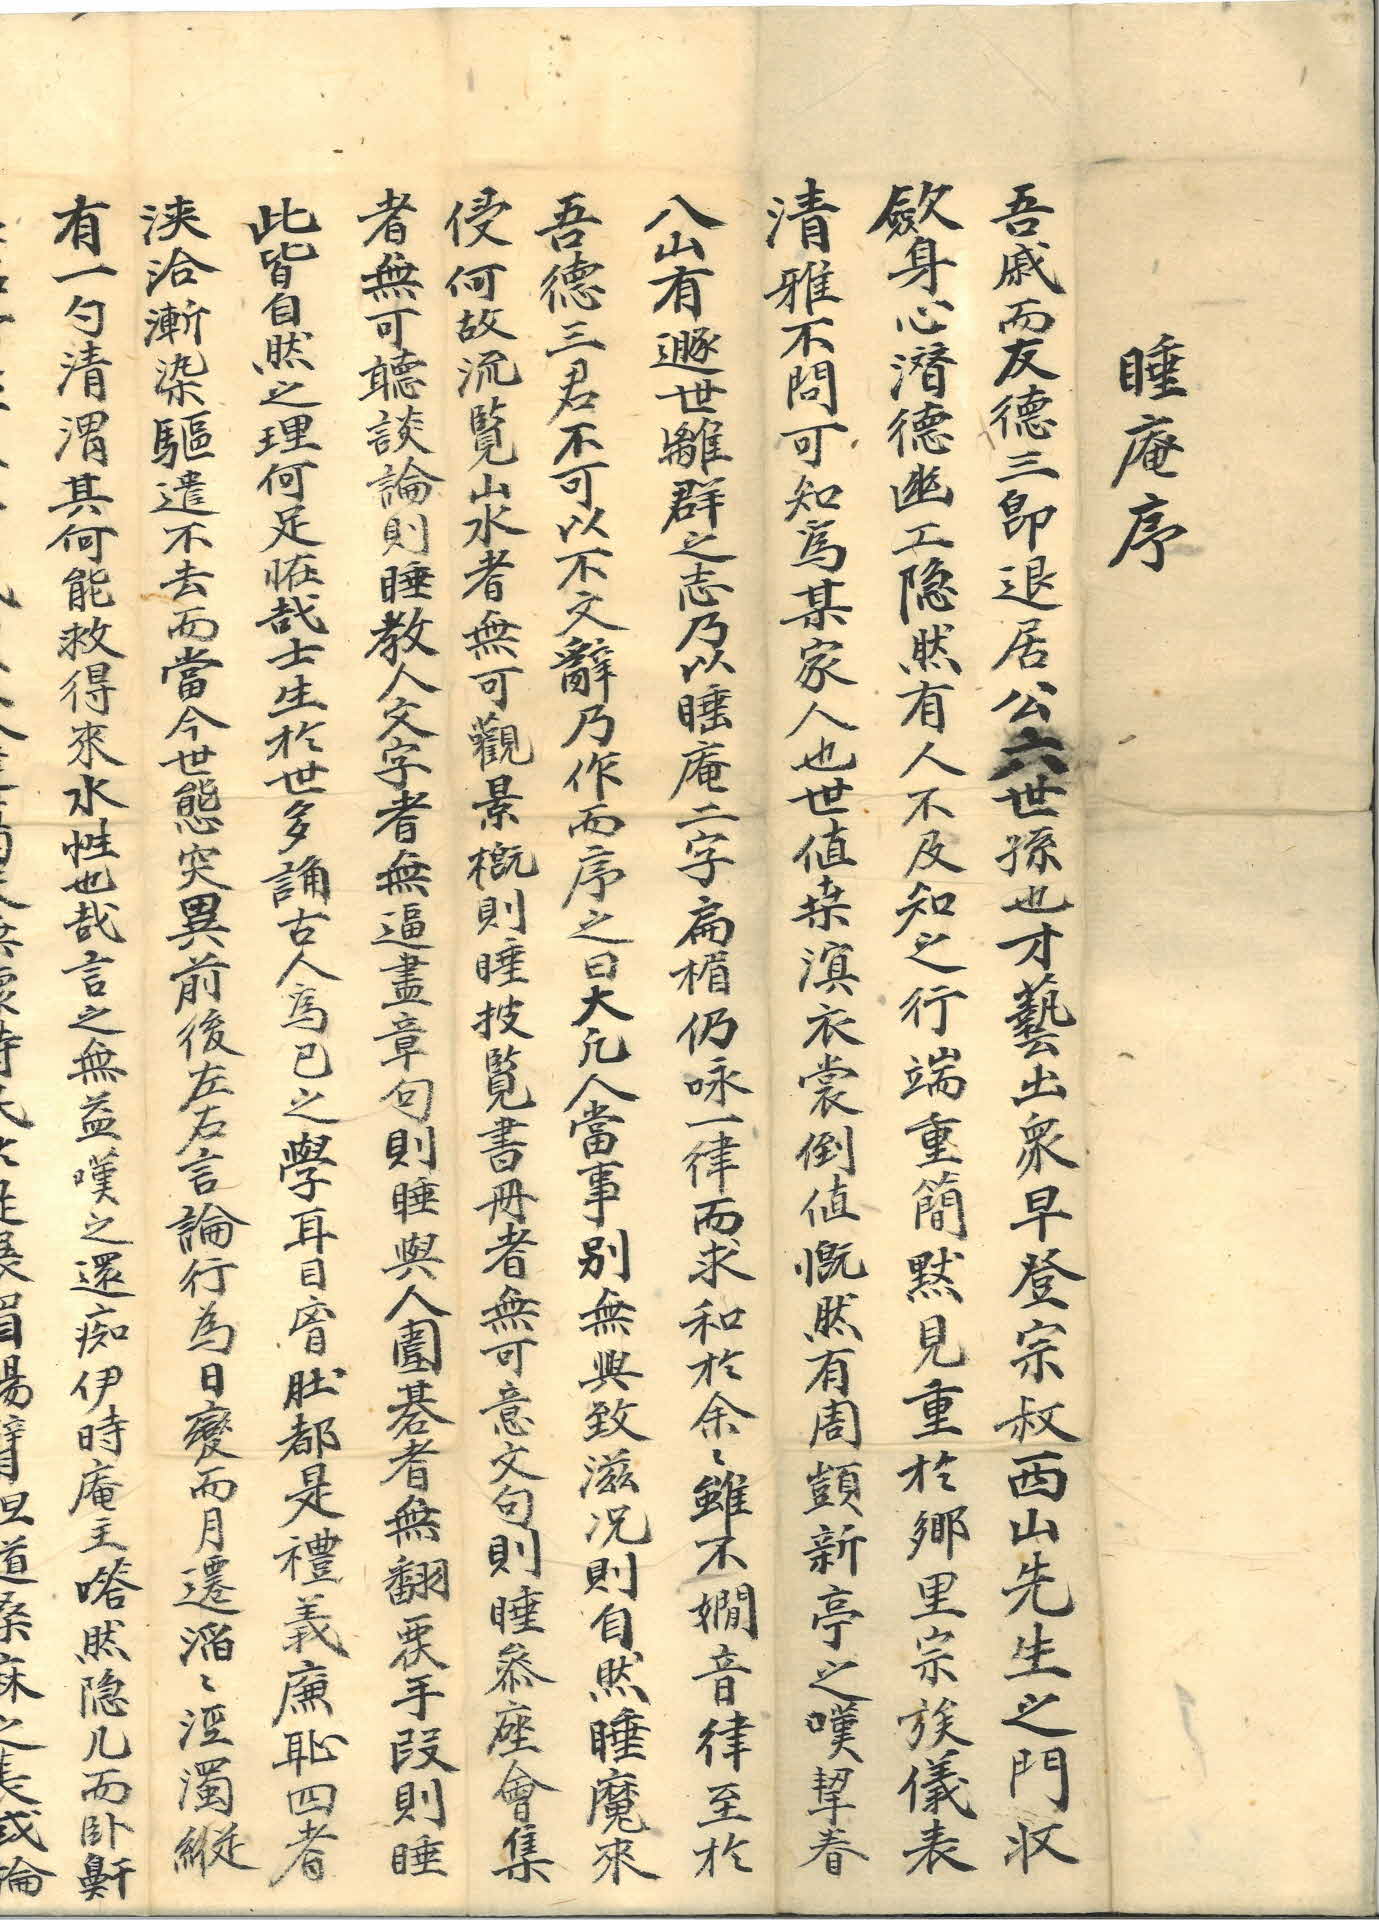 睡庵序
吾戚而友德三卽退居公六世孫也才藝出衆早登宗叔西山先生之門收
斂身心潛德幽工隐然有人不及知之行端重簡默見重於鄉里宗族儀表
清雅不問可知爲某家人也世值桒溟衣裳倒值慨然有周顗新亭之嘆挈眷
八山有遯世離群之志乃以睡庵二字扁楣仍咏一律而求和於余〻雖不嫺音律至於
吾德三君不可以不文辭乃作而序之曰大凡人當事別無興致滋况則自然睡魔來
侵何故流覽山水者無可觀景槪則睡披覽書冊者無可意文句則睡叅座會集
者無可聽談論則睡教人文字者無逼盡章句則睡與人圍碁者無翻覆手段則睡
此皆自然之理何足恠哉士生於世多誦古人爲己之學耳目胷肚都是禮義廉恥四者
浹洽漸染驅遣不去而當今世態突異前後左右言論行為日變而月遷滔〻涇濁縱
有一勺清渭其何能救得來水性也哉言之無益嘆之還痴伊時庵主嗒然隐几而卧鼾
展眉揚臂但道桑麻之長或論